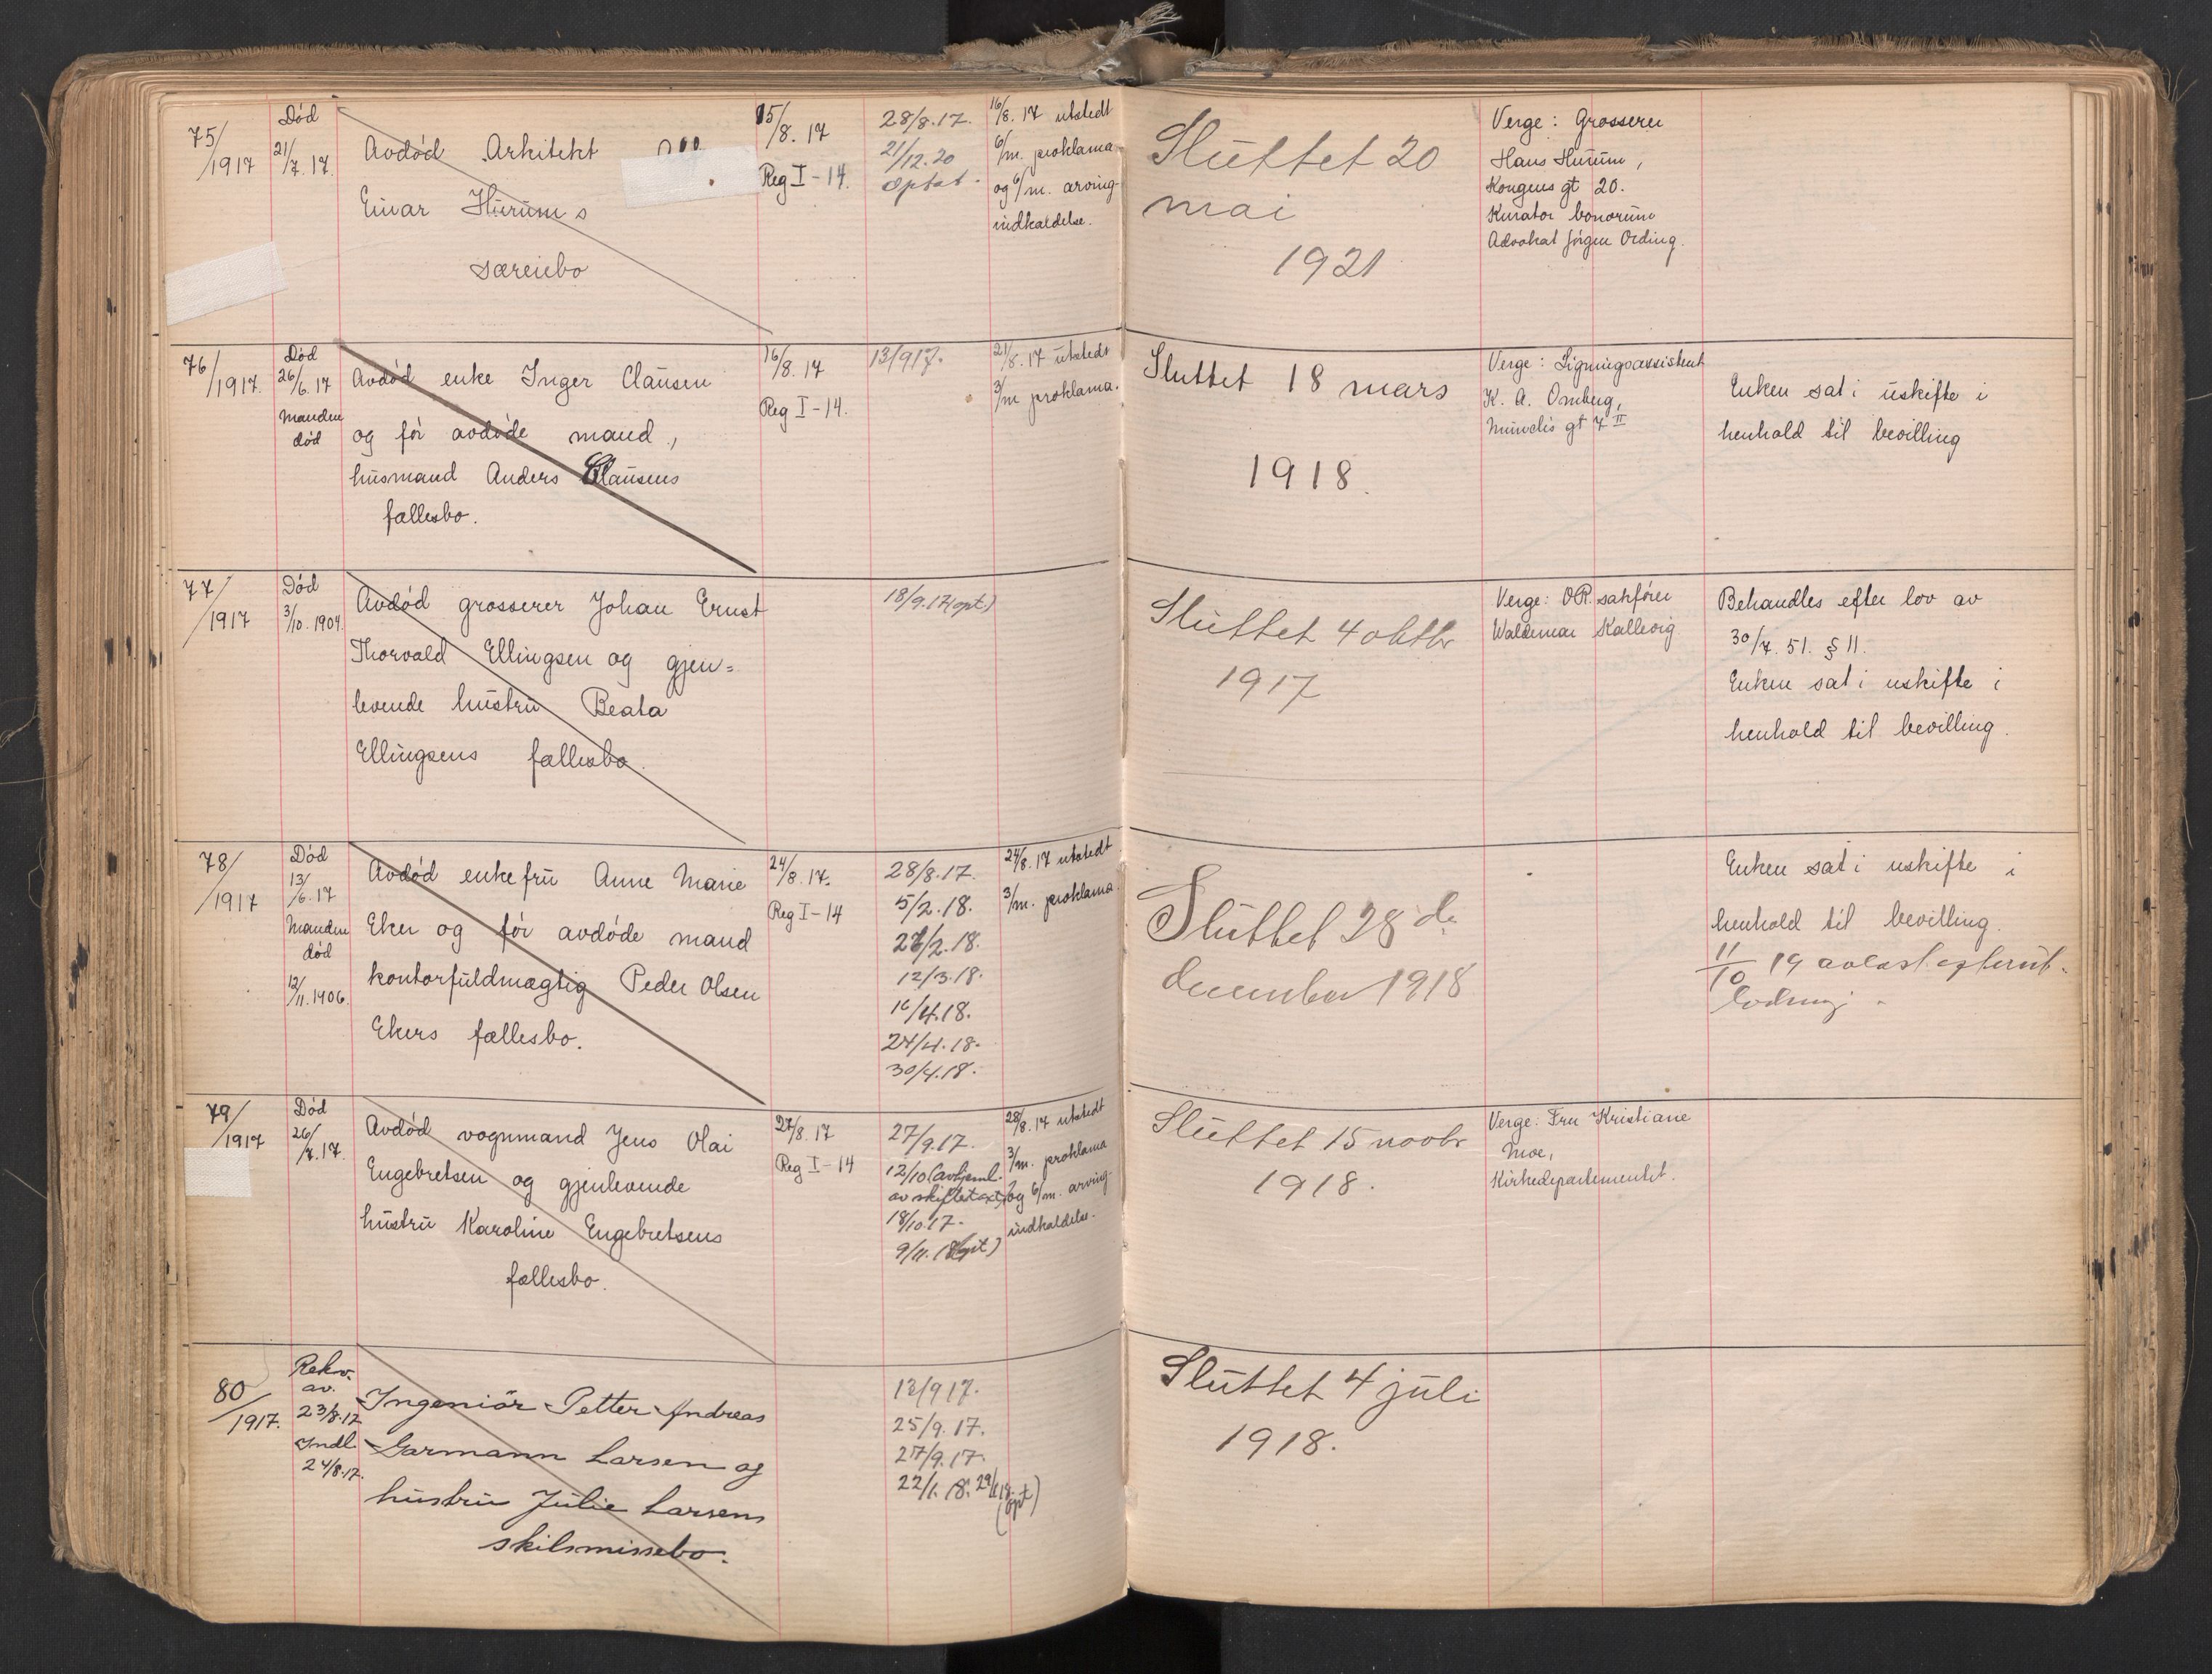 75/1917
Død
21/7.17.
Avdød Arkitekt
Einar Hurums
særeiebo
15/8.17
Reg I-14.
28/8.17.
21/12.20
optat.
16/8.17 utstedt
6/m. proklama
og 6/m. arving-
indkaldelse.
Sluttet 20
mai
1921
Verge: Grosserer
Hans Hurum,
Kongens gt 20.
Kurator bonorum
Advokat Jørgen Ording.
76/1917.
Død
26/6.17
Manden
død
Avdød enke Inger Clausen
og før avdøde mand,
husmand Anders Clausens
fællesbo.
16/8.17
Reg I-14.
13/917.
21/8.17 utstedt
3/m proklama.
Sluttet 18 mars
1918.
Verge: Ligningsassistent
K. A. Omberg,
gt 7 II
Enken sat i uskifte i
henhold til bevilling
77/1917
Død
3/10.1904.
Avdød grosserer Johan Ernst
Thorvald Ellingsen og gjen=
levende hustru Beata
Ellingsens fællesbo.
18/9.17(opt)
Sluttet 4 oktbr
1917
Verge: OR.sakfører
Waldemar Kallevig
Behandles efter lov av
30/7.51. § 11.
Enken sat i uskifte i
henhold til bevilling.
78/1917
Død
13/6.17
Manden
død
12/11.1906.
Avdød enkefru Anne Marie
Eker og før avdøde mand
kontorfuldmægtig Peder Olsen
Ekers fællesbo.
24/8.17.
Reg I-14
28/8.17.
5/2.18.
/2.18.
12/3.18.
16/4.18.
24/4.18.
30/4.18.
24/8.17 utstedt
3/m. proklama.
Sluttet 28 de
december 1918
Enken sat i uskifte i
henhold til bevilling.
11/10 19
79/1917
Død
26/7.17.
Avdød vognmand Jens Olai
Engebretsen og gjenlevende
hustru Karoline Engebretsens
fællesbo.
27/8.17
Reg I-14
27/9.17.
12/10 (avhjeml.
av skiftetakst)
18/10.17.
9/11.18(opt)
28/8.17 utstedt
3/m. proklama
og 6/m. arving-
indkaldelse.
Sluttet 15 novbr
1918.
Verge: Fru Kristiane
Moe,
Kirkedepartementet.
80/1917.
Rekv.
av.
23/8.17
Indl.
24/8.17.
Ingeniör Petter Andreas
Garmann Larsen og
hustru Julie Larsens
skilsmissebo.
13/917.
25/9.17.
27/9.17.
22/1.18. 29/1.18.
(opt)
Sluttet 4 juli
1918.